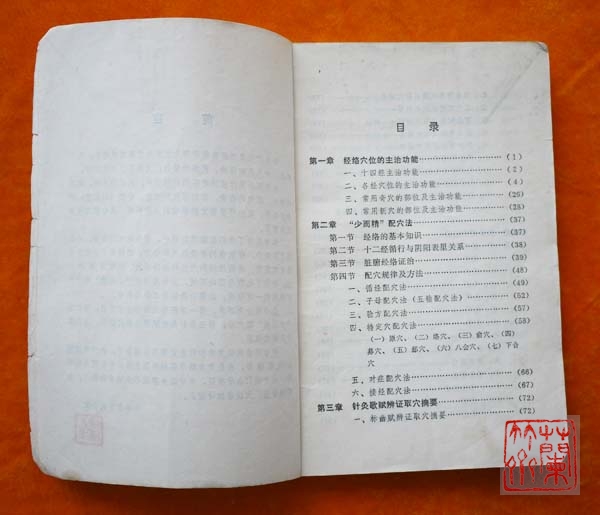 目录
第一章 经络穴位的主治功能……………………………(1)
一、十四经主治功能……………………………(2)
二、各经穴位的主治功能……………………………(4)
三、常用奇穴的部位及主治功能……………………(26)
四、常用新穴的部位及主治功能……………………(28)
第二章 “少而精”配穴法……………………………(37)
第一节 经络的基本知识……………………………(37)
第二节 十二经循行与阴阳表里关系………………(38)
第三节 脏腑经络证治……………………………(39)
第四节 配穴规律及方法……………………………(48)
一、循经配穴法……………………………(49)
二、子母配穴法（五腧配穴法）……………………(52)
三、验方配穴法……………………………(57)
四、特定穴配穴法……………………………(58)
（一）原穴、（二）络穴、（三）俞穴、（四）
募穴、（五）郄穴、（六）八会穴、（七）下合
穴
五、对症配穴法……………………………(66)
六、接经配穴法……………………………(67)
第三章 针灸歌赋辨证取穴摘要……………………(72)
一、标幽赋辨证取穴摘要……………………(72)